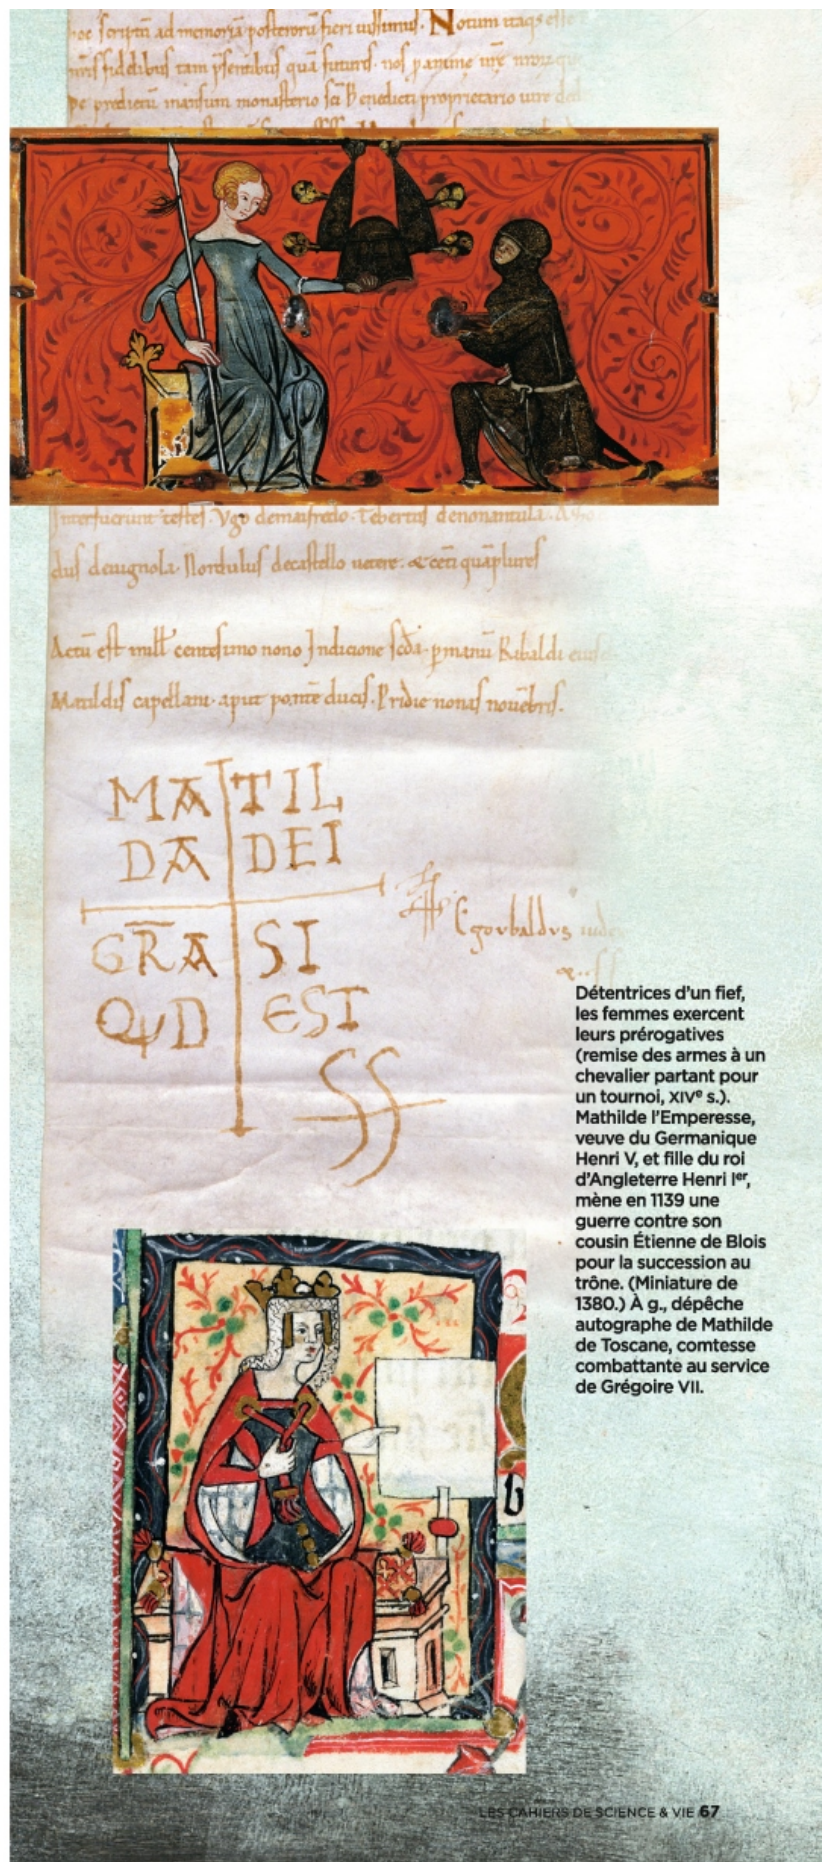 hoc scriptũ ad memoriã posteroru fieri iussimus. Notum itaqs esse
nris fidelibus tam psentibus quã futuris. nos
predictu mansum monasterio scĩ Benedicti proprietario iure
Interfuerunt testes. Ugo demaifredo. Tebertus denonantula.
dus deuignola. Nordulus decastello uetere. & cetĩ quãplures
Actũ est mill centesimo nono Indicione scđa. p manũ Ribaldi
Matildis capellani. aput pontẽ ducis. Pridie nonas nouẽbris.
MA TIL
DA DEI
GR̄A SI
QVD EST
SS
Egoubaldus iudex
Détentrices d’un fief,
les femmes exercent
leurs prérogatives
(remise des armes à un
chevalier partant pour
un tournoi, XIVᵉ s.).
Mathilde l’Emperesse,
veuve du Germanique
Henri V, et fille du roi
d’Angleterre Henri Iᵉʳ,
mène en 1139 une
guerre contre son
cousin Étienne de Blois
pour la succession au
trône. (Miniature de
1380.) À g., dépêche
autographe de Mathilde
de Toscane, comtesse
combattante au service
de Grégoire VII.
b
LES CAHIERS DE SCIENCE & VIE 67